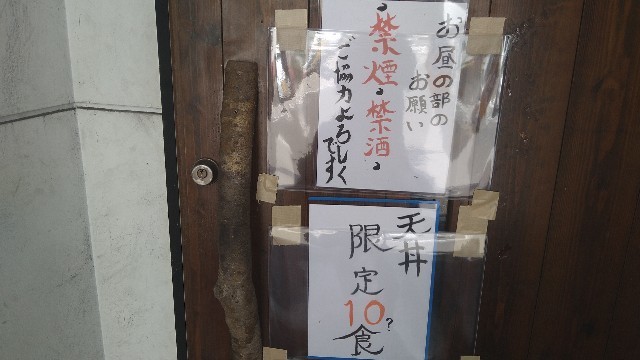 お昼の部の
お願い
禁煙。禁酒。
ご協力よろしく
です
天丼
限定10?食